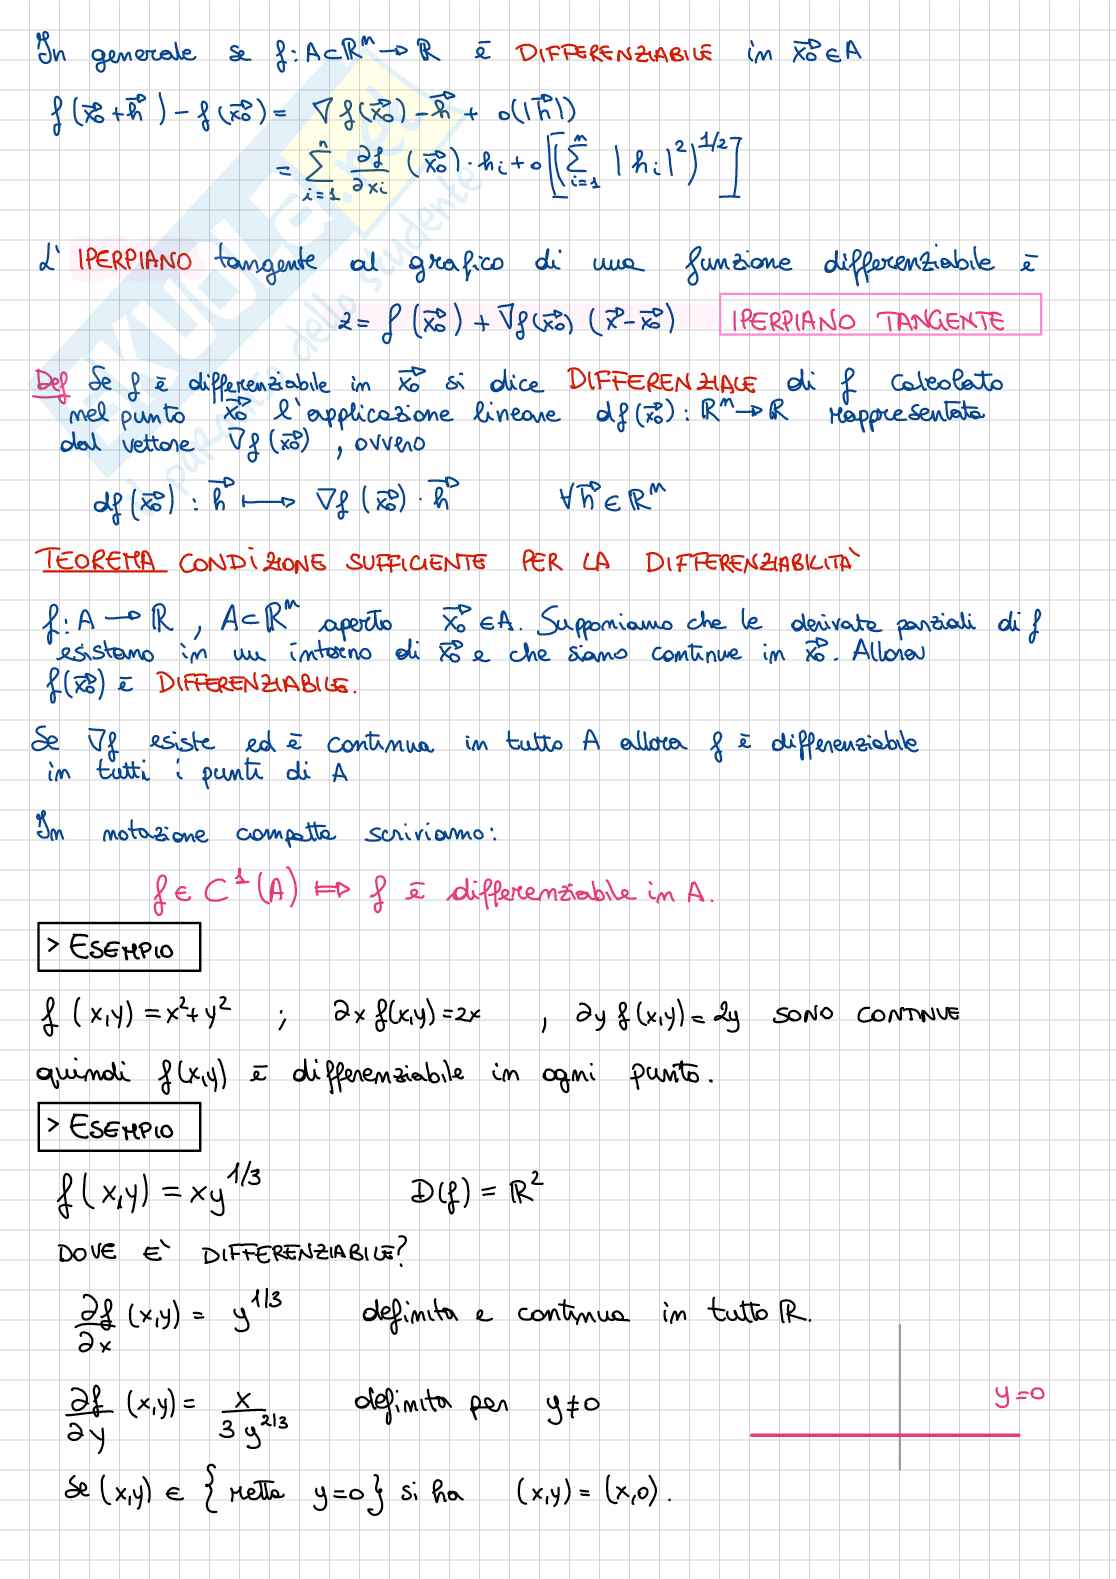 In generale se f: A⊂ℝⁿ → ℝ è DIFFERENZIABILE in x⃗₀ ∈ A
f(x⃗₀+h⃗) - f(x⃗₀) = ∇f(x⃗₀) - h⃗ + o(|h⃗|)
= Σᵢ₌₁ⁿ ∂f/∂xi (x⃗₀) · hi + o[(Σᵢ₌₁ⁿ |hi|²)^1/2]
L' IPERPIANO tangente al grafico di una funzione differenziabile è
z = f(x⃗₀) + ∇f(x⃗₀) (x⃗-x⃗₀) IPERPIANO TANGENTE
Def Se f è differenziabile in x⃗₀ si dice DIFFERENZIALE di f calcolato
nel punto x⃗₀ l'applicazione lineare df(x⃗₀): ℝⁿ → ℝ rappresentata
dal vettore ∇f(x⃗₀), ovvero
df(x⃗₀): h⃗ ⟼ ∇f(x⃗₀) · h⃗ ∀h⃗ ∈ ℝⁿ
TEOREMA CONDIZIONE SUFFICIENTE PER LA DIFFERENZIABILITÀ
f: A → ℝ, A⊂ℝⁿ aperto x⃗₀ ∈ A. Supponiamo che le derivate parziali di f
esistano in un intorno di x⃗₀ e che siano continue in x⃗₀. Allora
f(x⃗₀) è DIFFERENZIABILE.
Se ∇f esiste ed è continua in tutto A allora f è differenziabile
in tutti i punti di A
In notazione compatta scriviamo:
f ∈ C¹(A) ⟹ f è differenziabile in A.
> ESEMPIO
f(x,y) = x²+y² ; ∂x f(x,y) = 2x , ∂y f(x,y) = 2y SONO CONTINUE
quindi f(x,y) è differenziabile in ogni punto.
> ESEMPIO
f(x,y) = xy^1/3 D(f) = ℝ²
DOVE E' DIFFERENZIABILE?
∂f/∂x (x,y) = y^1/3 definita e continua in tutto ℝ.
∂f/∂y (x,y) = x/(3y^2/3) definita per y≠0
y=0
Se (x,y) ∈ {retta y=0} si ha (x,y) = (x,0).